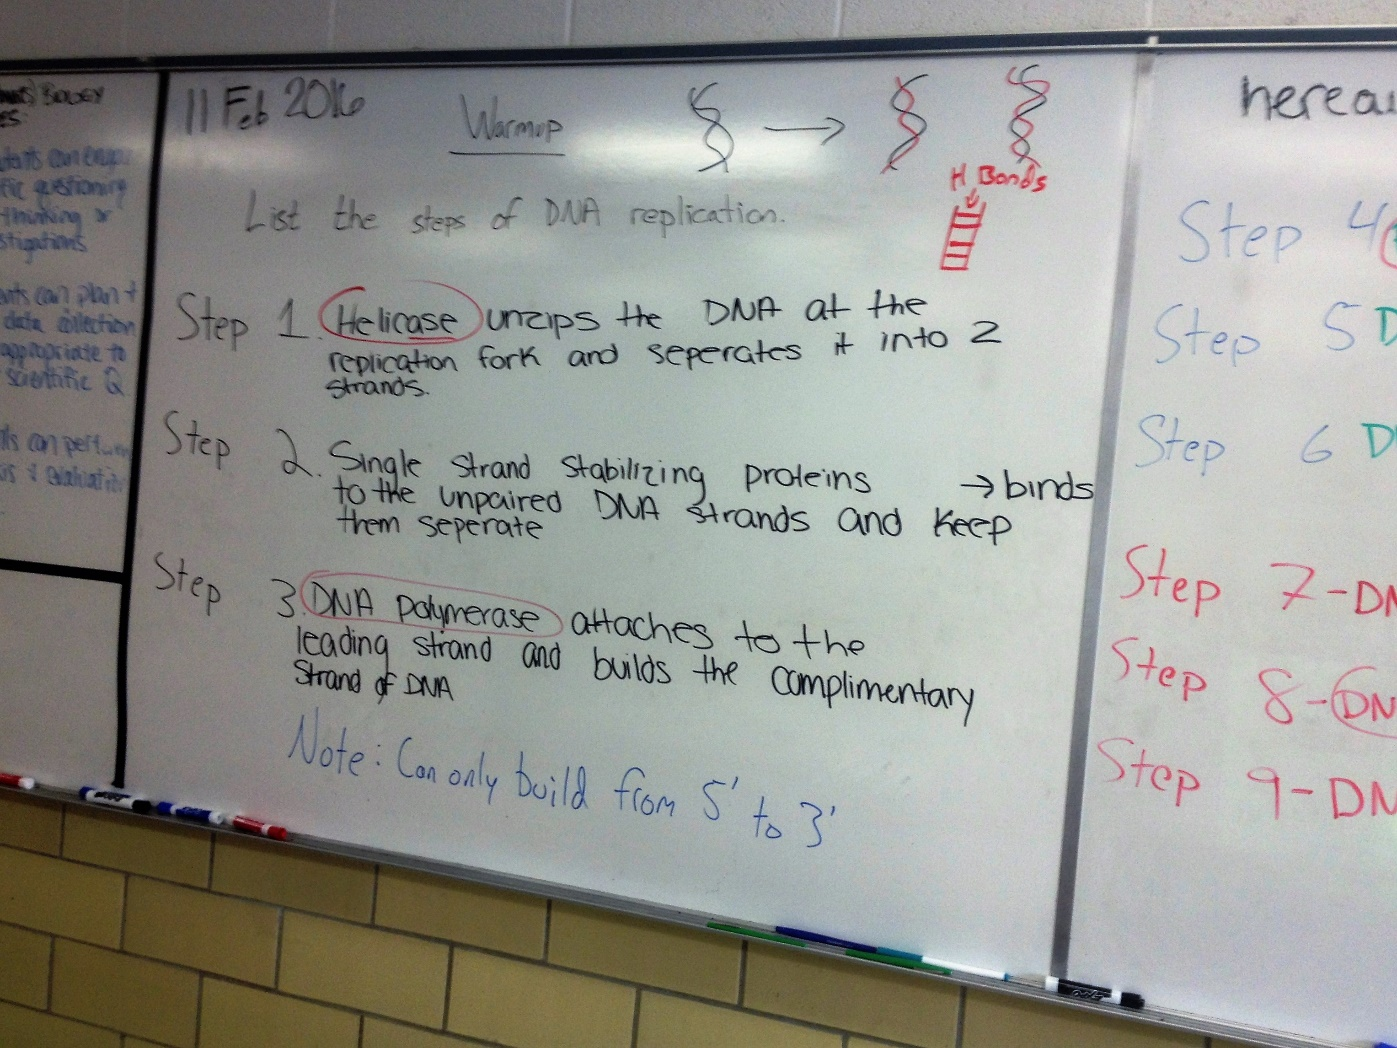 BOLEY
can
questioning
thinking or
can plan +
data collection
appropriate to
scientific Q
can
11 Feb 2016
Warmup
H Bonds
List the steps of DNA replication.
Step 1. Helicase unzips the DNA at the
replication fork and seperates it into 2
strands.
Step 2. Single strand stabilizing proteins → binds
to the unpaired DNA strands and keep
them seperate
Step 3. DNA polymerase attaches to the
leading strand and builds the complimentary
strand of DNA
Note: Can only build from 5' to 3'
Step 4
Step 5 D
Step 6 D
Step 7-DN
Step 8-DN
Step 9-DN